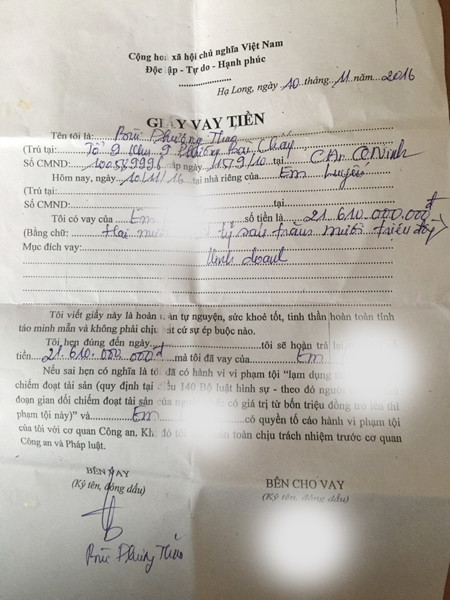 Cộng hoà xã hội chủ nghĩa Việt Nam
Độc lập - Tự do - Hạnh phúc
Hạ Long, ngày 10 tháng 11 năm 2016
GIẤY VAY TIỀN
Tôi tên là: Bùi Phương Thảo
(Trú tại: Tổ 9 Khu 9 Phường Bãi Cháy
Số CMND: ngày 9/10 tại CA Q Ninh
Hôm nay, ngày 10/11/16 tại nhà riêng của Em Luyến
(Trú tại:
Số CMND: tại
Tôi có vay của Em số tiền là: 21.610.000.000đ
(Bằng chữ: Hai mươi tỷ sáu trăm mười triệu
Mục đích vay: Kinh doanh
Tôi viết giấy này là hoàn toàn tự nguyện, sức khoẻ tốt, tinh thần hoàn toàn tỉnh
táo minh mẫn và không phải chịu bất cứ sự ép buộc nào.
Tôi hẹn đúng đến ngày tôi sẽ hoàn trả
tiền 21.610.000.000đ mà tôi đã vay của Em
Nếu sai hẹn có nghĩa là tôi đã có hành vi vi phạm tội "lạm dụng
chiếm đoạt tài sản (quy định tại điều 140 Bộ luật hình sự - theo đó người
đoạn gian dối chiếm đoạt tài sản của có giá trị từ bốn triệu đồng trở lên thì
phạm tội này)" và Em có quyền tố cáo hành vi phạm tội
của tôi với cơ quan Công an, Khi đó tôi toàn chịu trách nhiệm trước cơ quan
Công an và Pháp luật.
BÊN VAY
(Ký tên, đóng dấu)
BÊN CHO VAY
(Ký tên, đóng dấu)
Bùi Phương Thảo